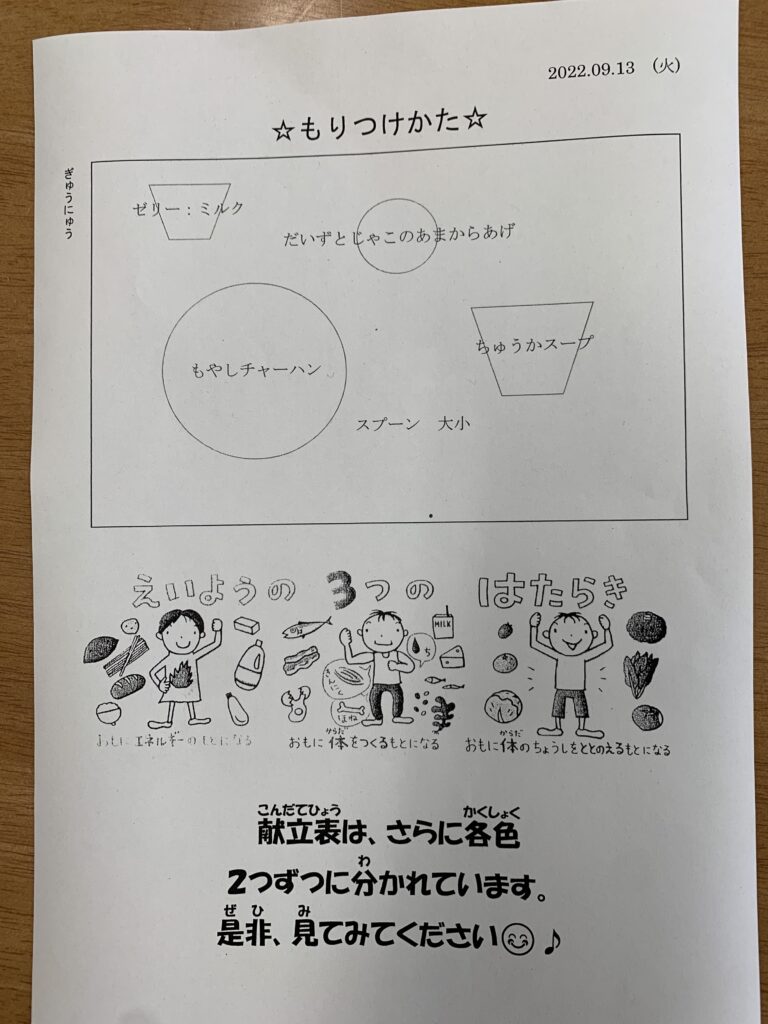 2022.09.13 (火)
☆もりつけかた☆
ぎゅうにゅう
ゼリー：ミルク
だいずとじゃこのあまからあげ
もやしチャーハン
ちゅうかスープ
スプーン 大小
えいようの 3つの はたらき
MILK
ち
きんにく
ほね
おもに エネルギーのもとになる
からだ
おもに 体をつくるもとになる
からだ
おもに体のちょうしをととのえるもとになる
こんだてひょう かくしょく
献立表は、さらに各色
わ
2つずつに分かれています。
ぜひ み
是非、見てみてください😊♪